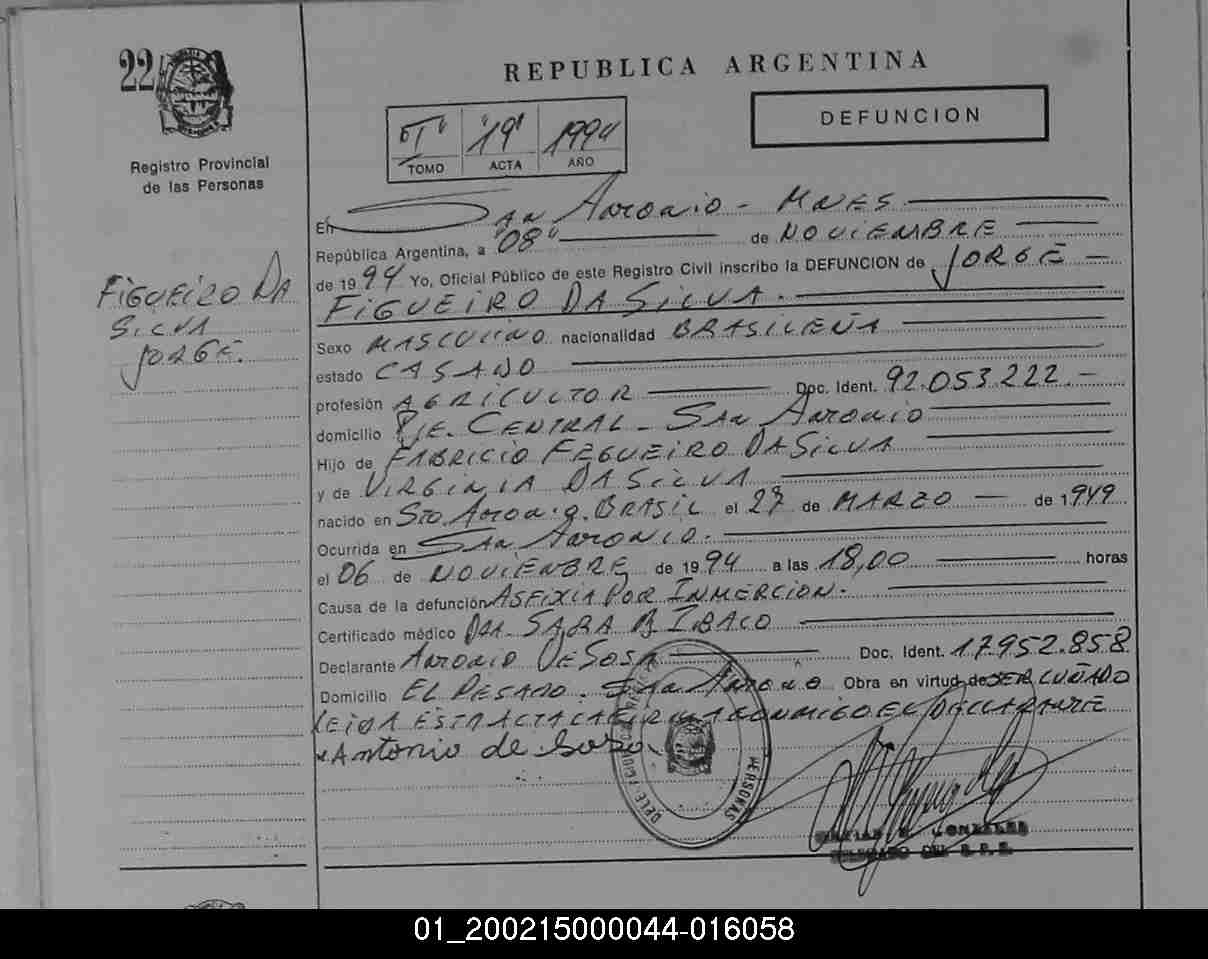 22
REPUBLICA ARGENTINA
DEFUNCION
"I" "19" 1994
TOMO ACTA AÑO
Registro Provincial
de las Personas
FIGUEIRO DA
SILVA
JORGE.
En SAN ANTONIO - MNES
República Argentina, a "08" de NOVIEMBRE
de 1994 Yo, Oficial Público de este Registro Civil inscribo la DEFUNCION de JORGE
FIGUEIRO DA SILVA.
Sexo MASCULINO nacionalidad BRASILEÑA
estado CASADO
profesión AGRICULTOR Doc. Ident. 92.053.222.-
domicilio PJE. CENTRAL - SAN ANTONIO
Hijo de FABRICIO FEGUEIRO DA SILVA
y de VIRGINIA DA SILVA
nacido en STO. BRASIL el 27 de MARZO de 1949
Ocurrida en SAN ANTONIO.
el 06 de NOVIEMBRE de 1994 a las 18,00 horas
Causa de la defunción ASFIXIA POR INMERCION.
Certificado médico DRA. SARA
Declarante ANTONIO DE SOSA Doc. Ident. 17952.858
Domicilio EL PESADO. SAN ANTONIO Obra en virtud de SER CUÑADO
LEIDA ESTA ACTA LA FIRMA CONMIGO EL DECLARANTE
Antonio de Soso
PERSONAS
GONZALEZ
DELEGADO DEL R. P. P.
01_200215000044-016058